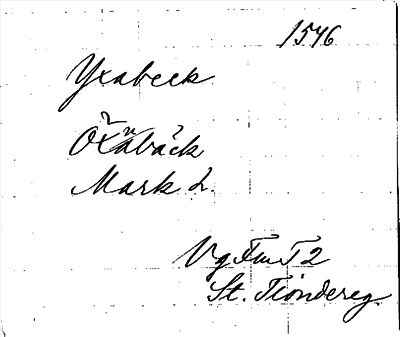 1546
Yxabeck
Öxabäck
Mark h.
Vg Fm T 2
St. Tiondereg.